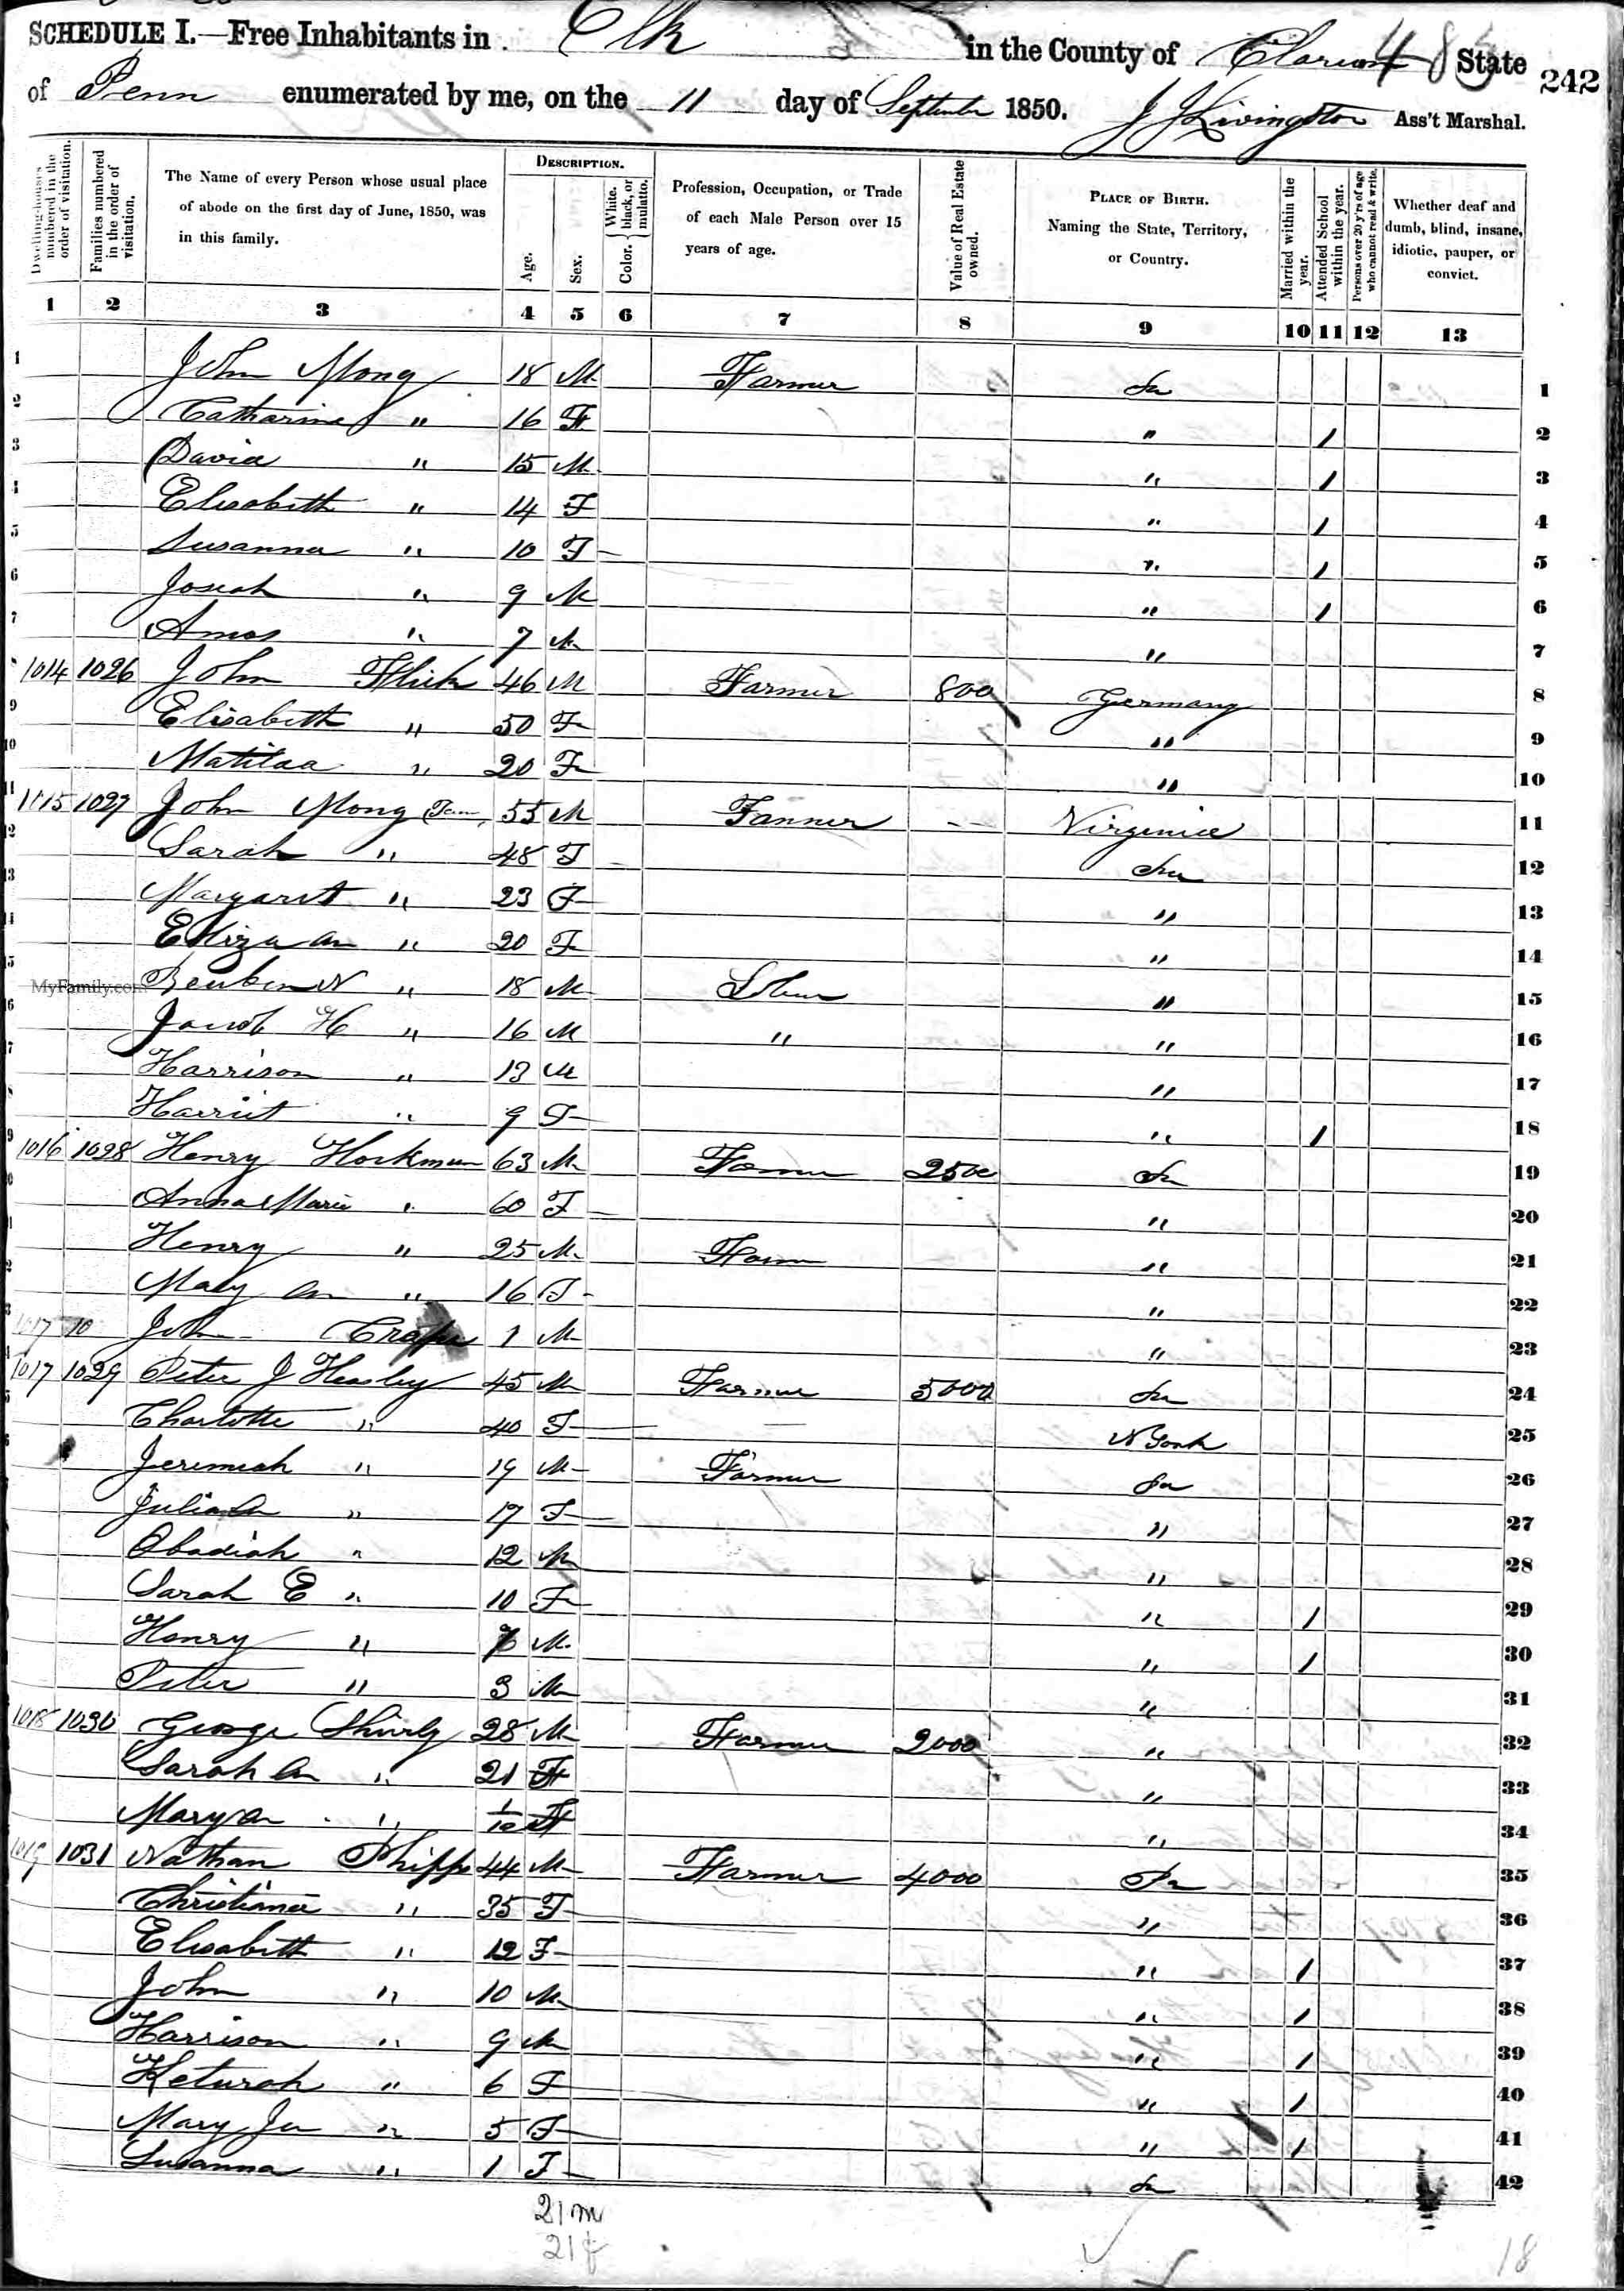 SCHEDULE I.—Free Inhabitants in Elk in the County of Clarion State 242
of Penn enumerated by me, on the 11 day of September 1850. J J Livingston Ass't Marshal.
Dwelling-houses numbered in the order of visitation.
Families numbered in the order of visitation.
The Name of every Person whose usual place of abode on the first day of June, 1850, was in this family.
DESCRIPTION.
Age.
Sex.
Color. White, black, or mulatto.
Profession, Occupation, or Trade of each Male Person over 15 years of age.
Value of Real Estate owned.
PLACE OF BIRTH. Naming the State, Territory, or Country.
Married within the year.
Attended School within the year.
Persons over 20 y'rs of age who cannot read & write.
Whether deaf and dumb, blind, insane, idiotic, pauper, or convict.
1 2 3 4 5 6 7 8 9 10 11 12 13
1 John Mong 18 M Farmer Pa 1
2 Catharine " 16 F " / 2
3 David " 15 M " / 3
4 Elisabeth " 14 F " / 4
5 Susanna " 10 F " / 5
6 Josiah " 9 M " / 6
7 Amos " 7 M " 7
1014 1026 John Flick 46 M Farmer 800 Germany 8
9 Elisabeth " 50 F " 9
10 Matilda " 20 F " 10
11 1015 1027 John Mong 55 M Tanner -- Virginia 11
12 Sarah " 48 F Pa 12
13 Margaret " 23 F " 13
14 Eliza An " 20 F " 14
MyFamily.com Reuben N " 18 M " 15
16 Jacob H " 16 M " " 16
17 Harrison " 13 M " 17
Harriet " 9 F " / 18
1016 1028 Henry Hockman 63 M Farmer 2500 Pa 19
Anna Maria " 60 F " 20
Henry " 25 M Farm " 21
Mary An " 16 F " 22
1017 10 John 1 M " 23
1017 1029 Peter J Heasley 45 M Farmer 5000 Pa 24
Charlotte " 40 F — N York 25
Jeremiah " 19 M Farmer Pa 26
Julia A " 17 F " 27
Obadiah " 12 M " 28
Sarah E " 10 F " / 29
Henry " 7 M " / 30
Peter " 3 M " 31
1018 1030 George Shirly 28 M Farmer 2000 " 32
Sarah An " 21 F " 33
Mary An " F " 34
1019 1031 Nathan Phipps 44 M Farmer 4000 Pa 35
Christiana " 35 F " 36
Elisabeth " 12 F " / 37
John " 10 M " / 38
Harrison " 9 M " / 39
Keturah " 6 F " / 40
Mary Jn " 5 F " / 41
Susanna " 1 F Pa 42
21 m
21 f
18